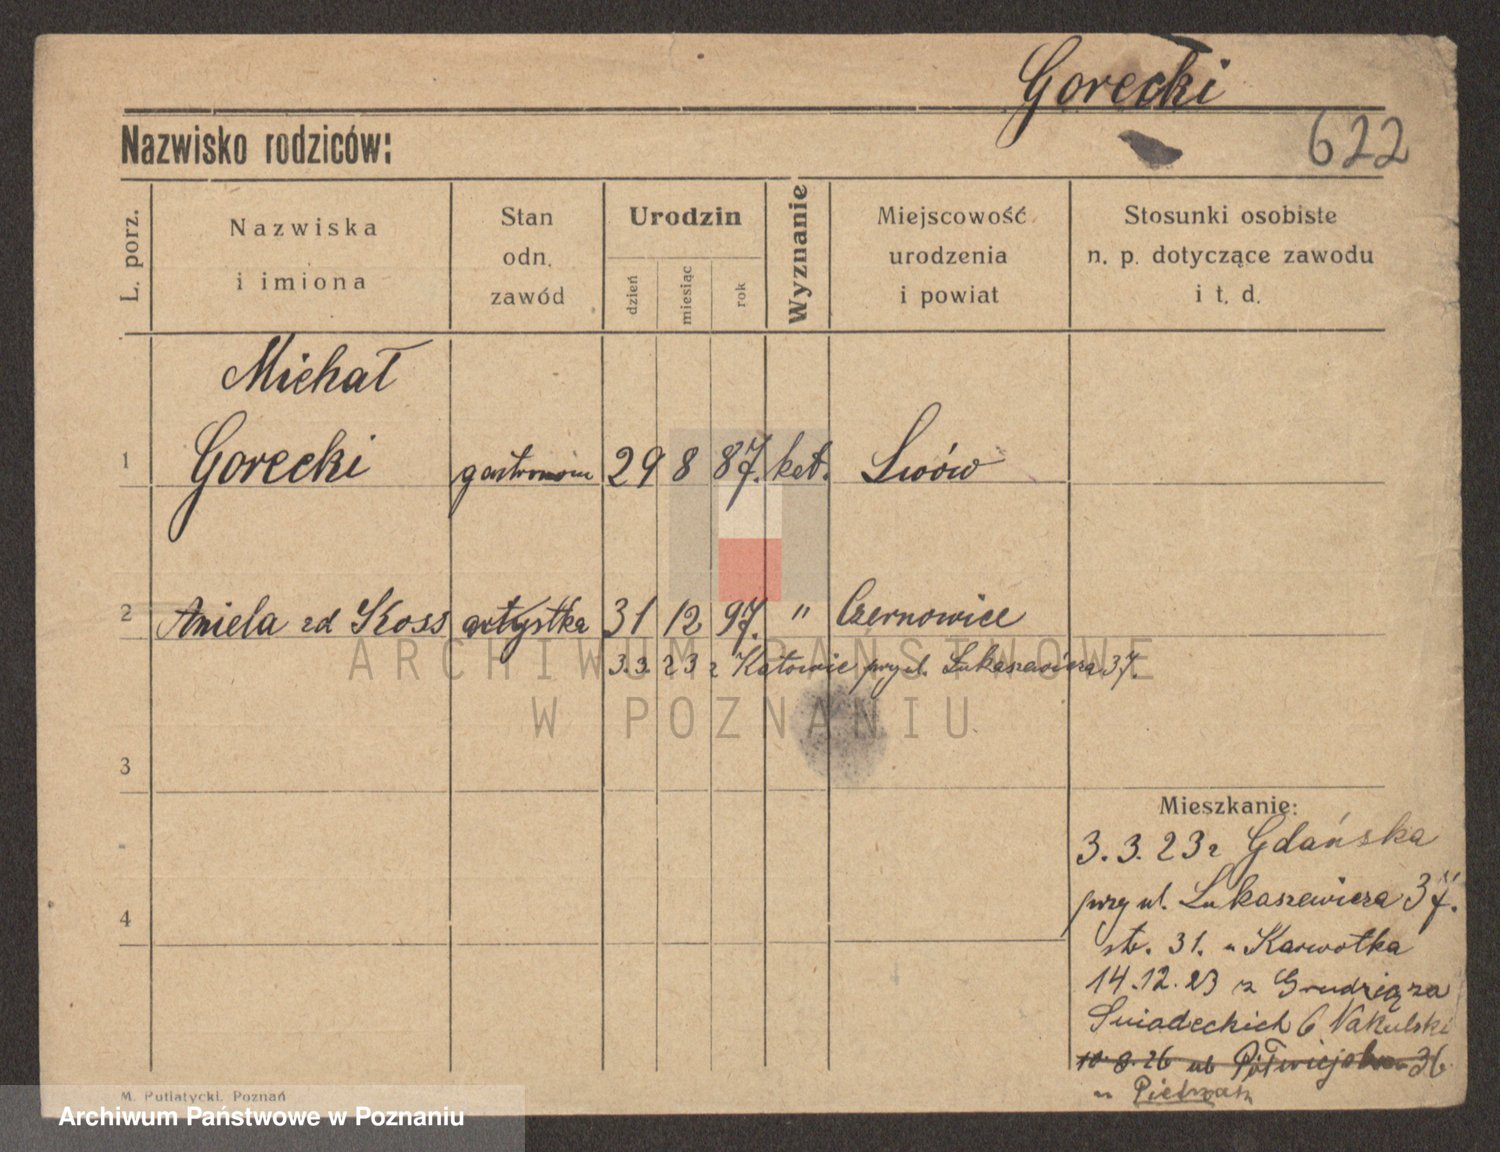 Gorecki
622
Nazwisko rodziców:
L. porz.
Nazwiska
i imiona
Stan
odn.
zawód
Urodzin
dzień
miesiąc
rok
Wyznanie
Miejscowość
urodzenia
i powiat
Stosunki osobiste
n. p. dotyczące zawodu
i t. d.
Michał
1 Gorecki gastronom 29 8 87. kat. Lwów
2 Aniela zd Koss artystka 31 12 97. " Czernowice
3.3.23 z Katowic przy ul. Łukaszewicza 37.
ARCHIWUM PAŃSTWOWE
W POZNANIU
3
Mieszkanie:
3.3.23 z Gdańska
przy ul. Łukaszewicza 37.
4
str. 31. u Karwotka
14.12.23 z Grudziąza
Śniadeckich 6 Nakulski
10.8.26 ul Półwiejska 36
u Pietrzak
M. Putiatycki, Poznań
Archiwum Państwowe w Poznaniu